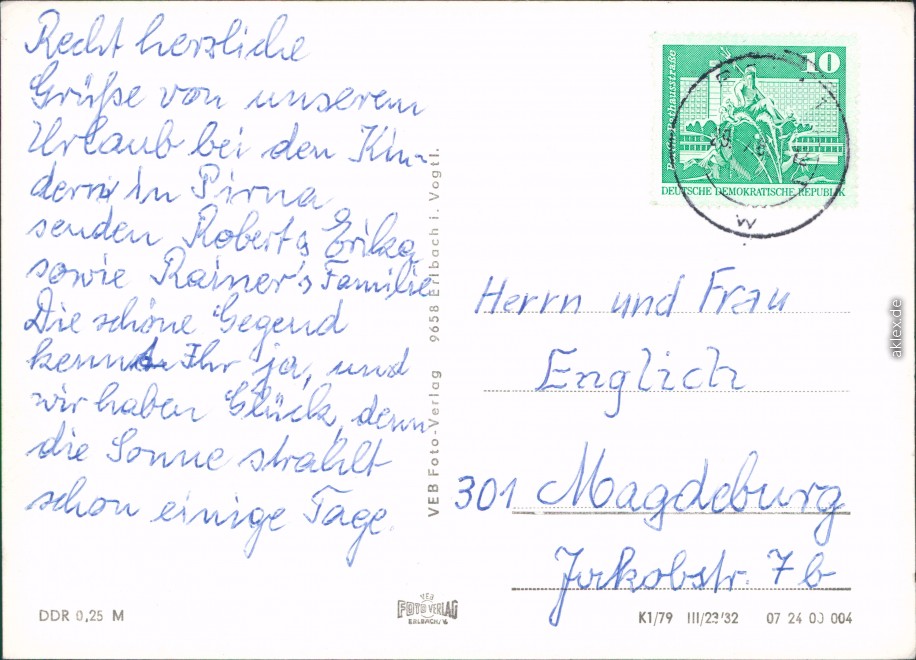 Recht herzliche
Grüße von unserem
Urlaub bei den Kin-
dern in Pirna
senden Robert & Erika
sowie Rainer's Familie
Die schöne Gegend
kennt Ihr ja, und
wir haben Glück, denn
die Sonne strahlt
schon einige Tage.
DDR 0,25 M
VEB Foto-Verlag 9658 Erlbach i. Vogtl.
VEB
FOTO VERLAG
ERLBACH/V.
10
Rathausstraße
DEUTSCHE DEMOKRATISCHE REPUBLIK
Herrn und Frau
Englich
301 Magdeburg
Jakobstr. 7b
K1/79 III/23/32 07 24 00 004
aklex.de